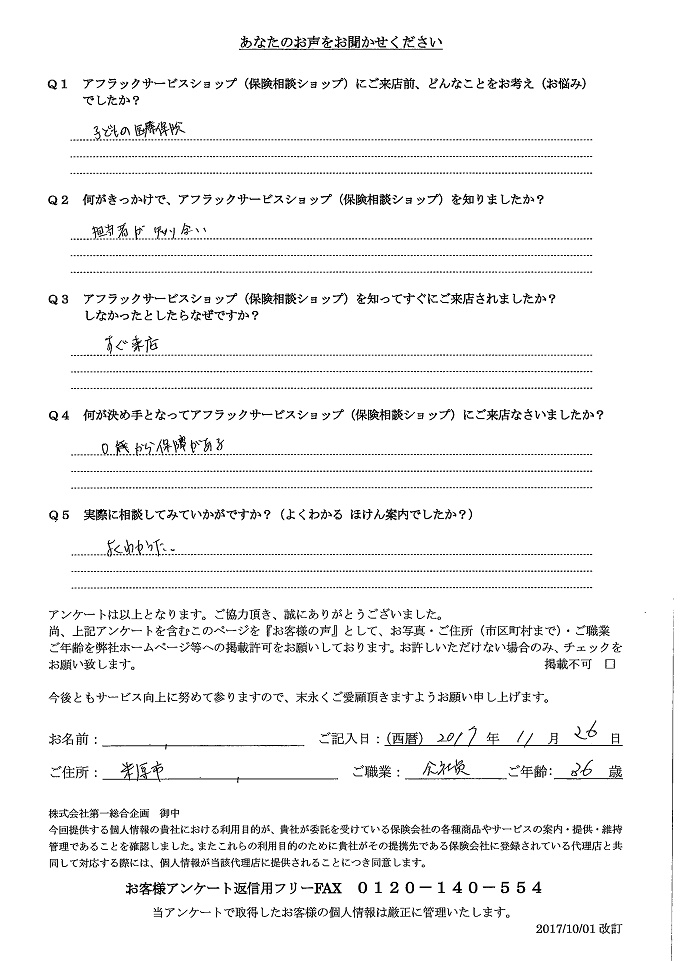 あなたのお声をお聞かせください
Q1 アフラックサービスショップ（保険相談ショップ）にご来店前、どんなことをお考え（お悩み）
でしたか？
子どもの医療保険
Q2 何がきっかけで、アフラックサービスショップ（保険相談ショップ）を知りましたか？
担当者が知り合い
Q3 アフラックサービスショップ（保険相談ショップ）を知ってすぐにご来店されましたか？
しなかったとしたらなぜですか？
すぐ来店
Q4 何が決め手となってアフラックサービスショップ（保険相談ショップ）にご来店なさいましたか？
0歳から保障がある
Q5 実際に相談してみていかがですか？（よくわかる ほけん案内でしたか？）
よくわかった。
アンケートは以上となります。ご協力頂き、誠にありがとうございました。
尚、上記アンケートを含むこのページを『お客様の声』として、お写真・ご住所（市区町村まで）・ご職業
ご年齢を弊社ホームページ等への掲載許可をお願いしております。お許しいただけない場合のみ、チェックを
お願い致します。 掲載不可 □
今後ともサービス向上に努めて参りますので、末永くご愛顧頂きますようお願い申し上げます。
お名前： ご記入日：（西暦） 2017 年 11 月 26 日
ご住所： 米原市 ご職業： 会社員 ご年齢： 36 歳
株式会社第一総合企画 御中
今回提供する個人情報の貴社における利用目的が、貴社が委託を受けている保険会社の各種商品やサービスの案内・提供・維持
管理であることを確認しました。またこれらの利用目的のために貴社がその提携先である保険会社に登録されている代理店と共
同して対応する際には、個人情報が当該代理店に提供されることにつき同意します。
お客様アンケート返信用フリーFAX 0120－140－554
当アンケートで取得したお客様の個人情報は厳正に管理いたします。
2017/10/01 改訂